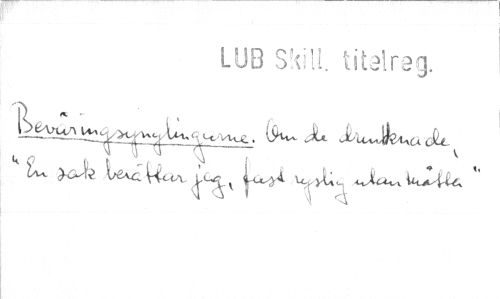 LUB Skill. titelreg.
Beväringsynglingarne. Om de drunknade,
"En sak berättar jag, fast ryslig utan måtta"